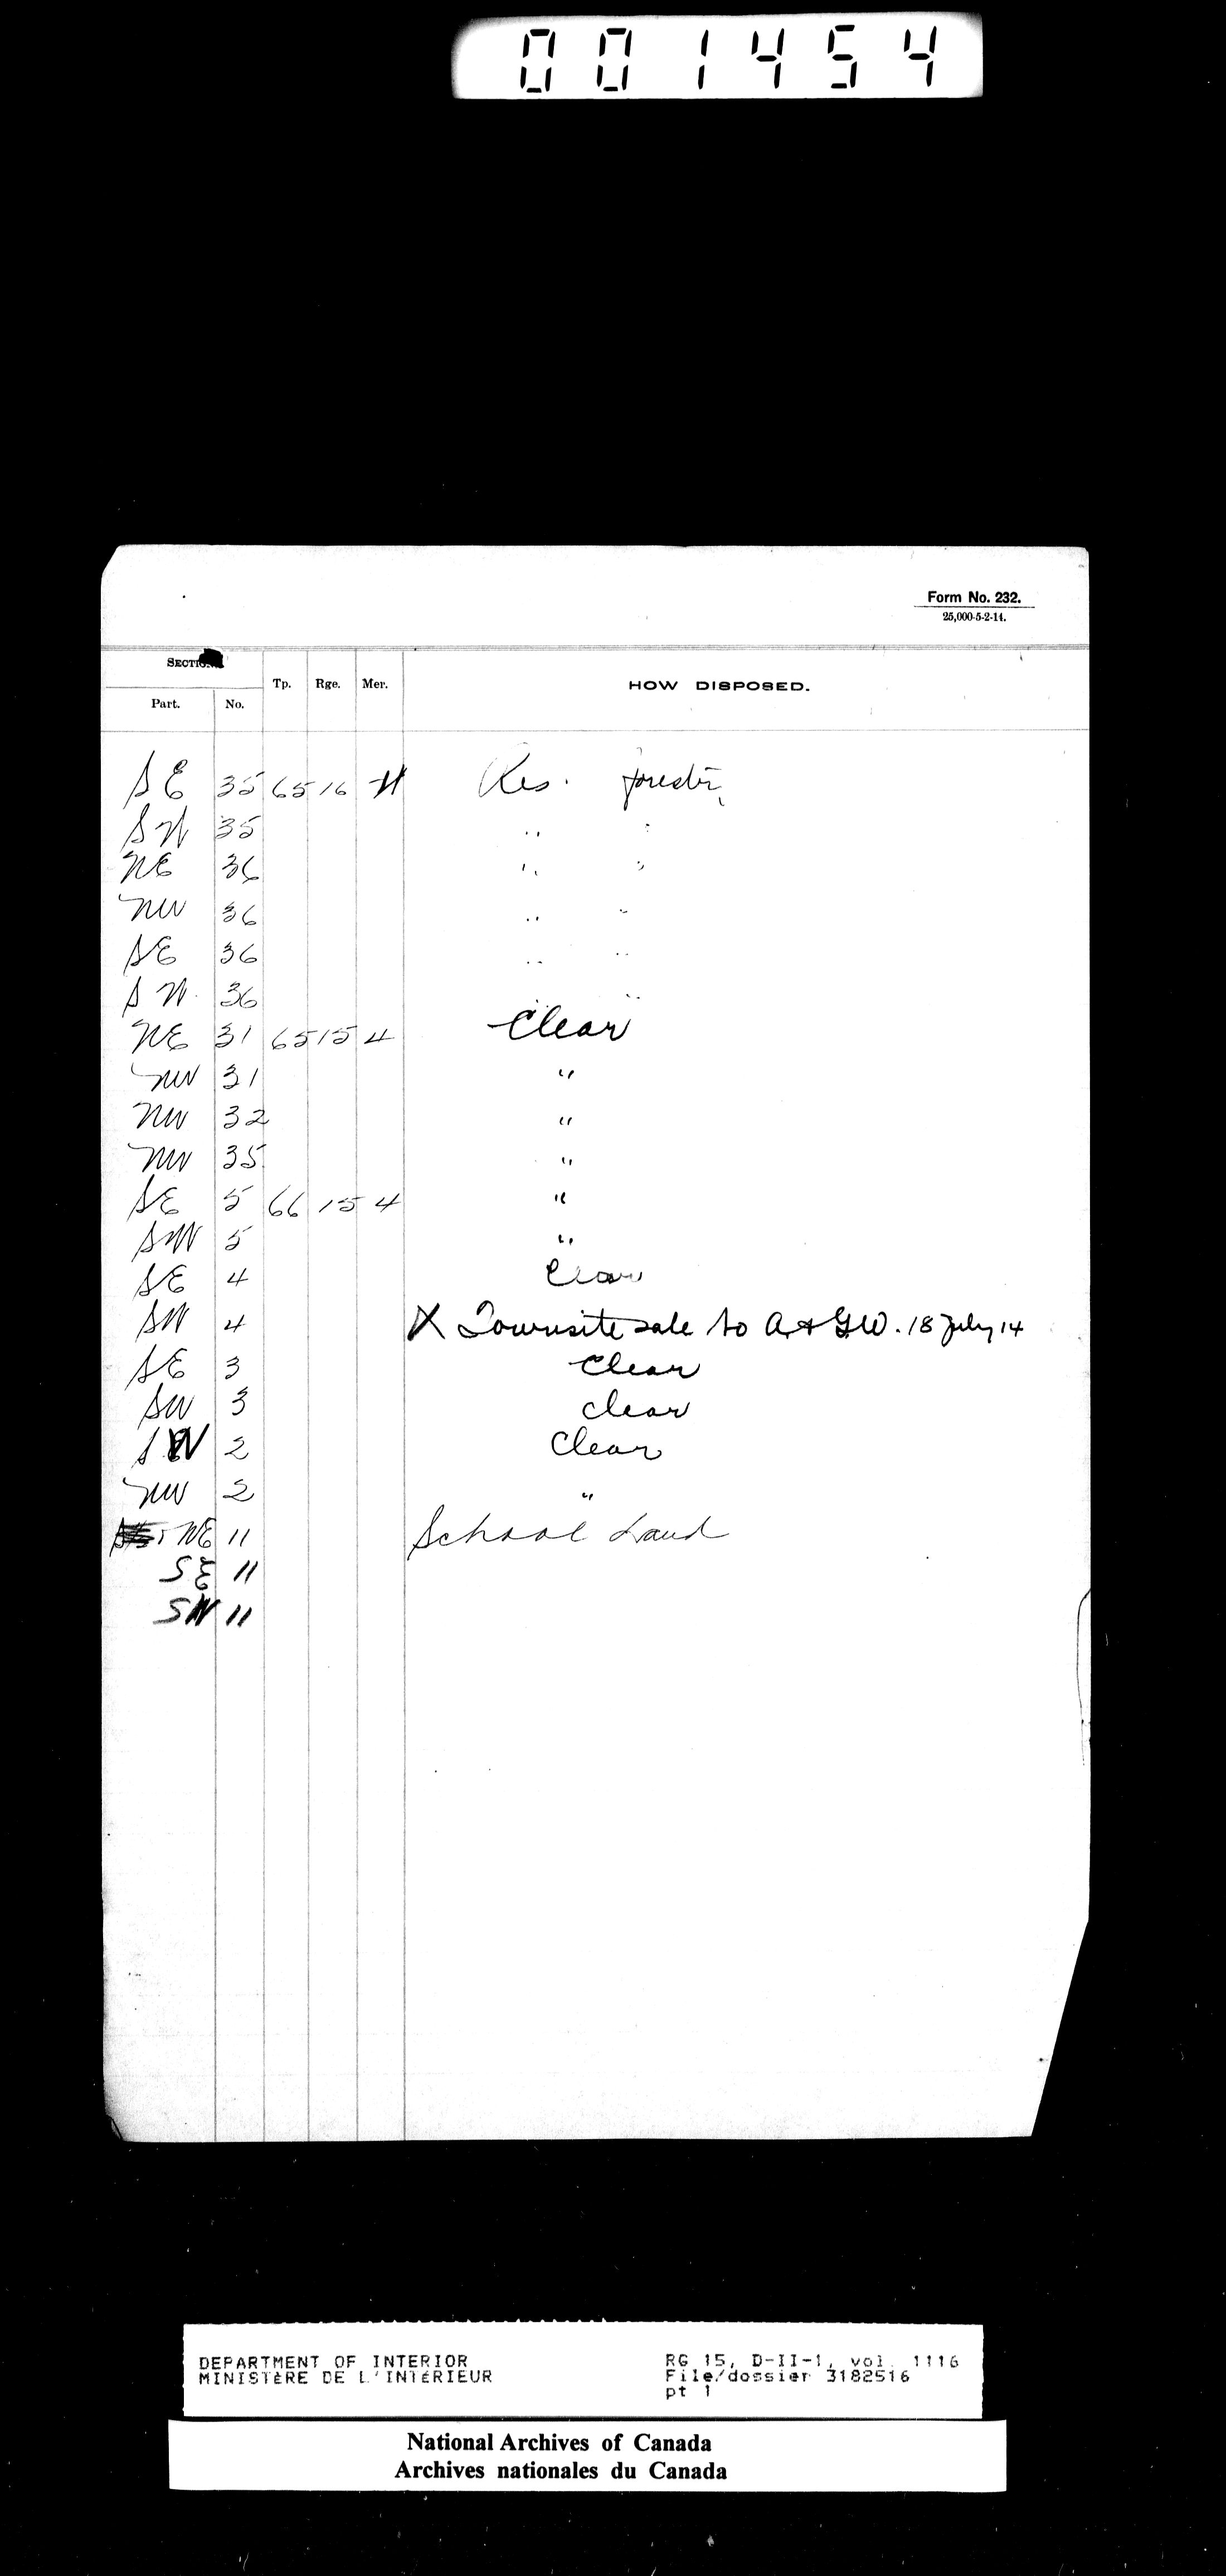 001454
Form No. 232.
25,000-5-2-14.
SECTION
Tp. Rge. Mer. HOW DISPOSED.
Part. No.
SE 35 65 16 4 Res. forestry
SW 35 " "
NE 36 " "
NW 36 " "
SE 36 " "
SW. 36 " "
NE 31 65 15 4 Clear
NW 31 "
NW 32 "
NW 35 "
SE 5 66 15 4 "
SW 5 "
SE 4 Clear
SW 4 X Townsite sale to A & GW. 18 July 14
SE 3 Clear
SW 3 clear
SW 2 Clear
NW 2 "
NE 11 School Land
SE 11
SW 11
DEPARTMENT OF INTERIOR RG 15, D-II-1, vol. 1116
MINISTÈRE DE L'INTÉRIEUR File/dossier 3182516
pt 1
National Archives of Canada
Archives nationales du Canada